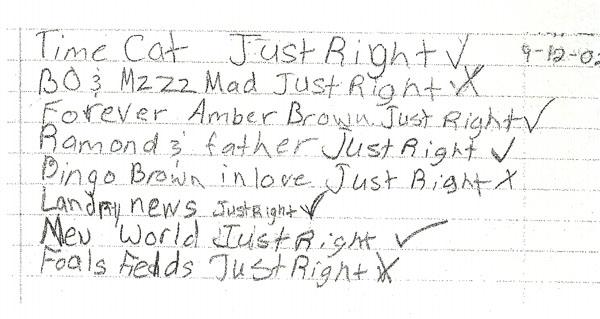 Time Cat Just Right ✓ 9-12-02
BO & Mzzz Mad Just Right X
Forever Amber Brown Just Right ✓
Ramond & father Just Right ✓
Bingo Brown in love Just Right X
news Just Right ✓
World Just Right ✓
Foals Just Right X